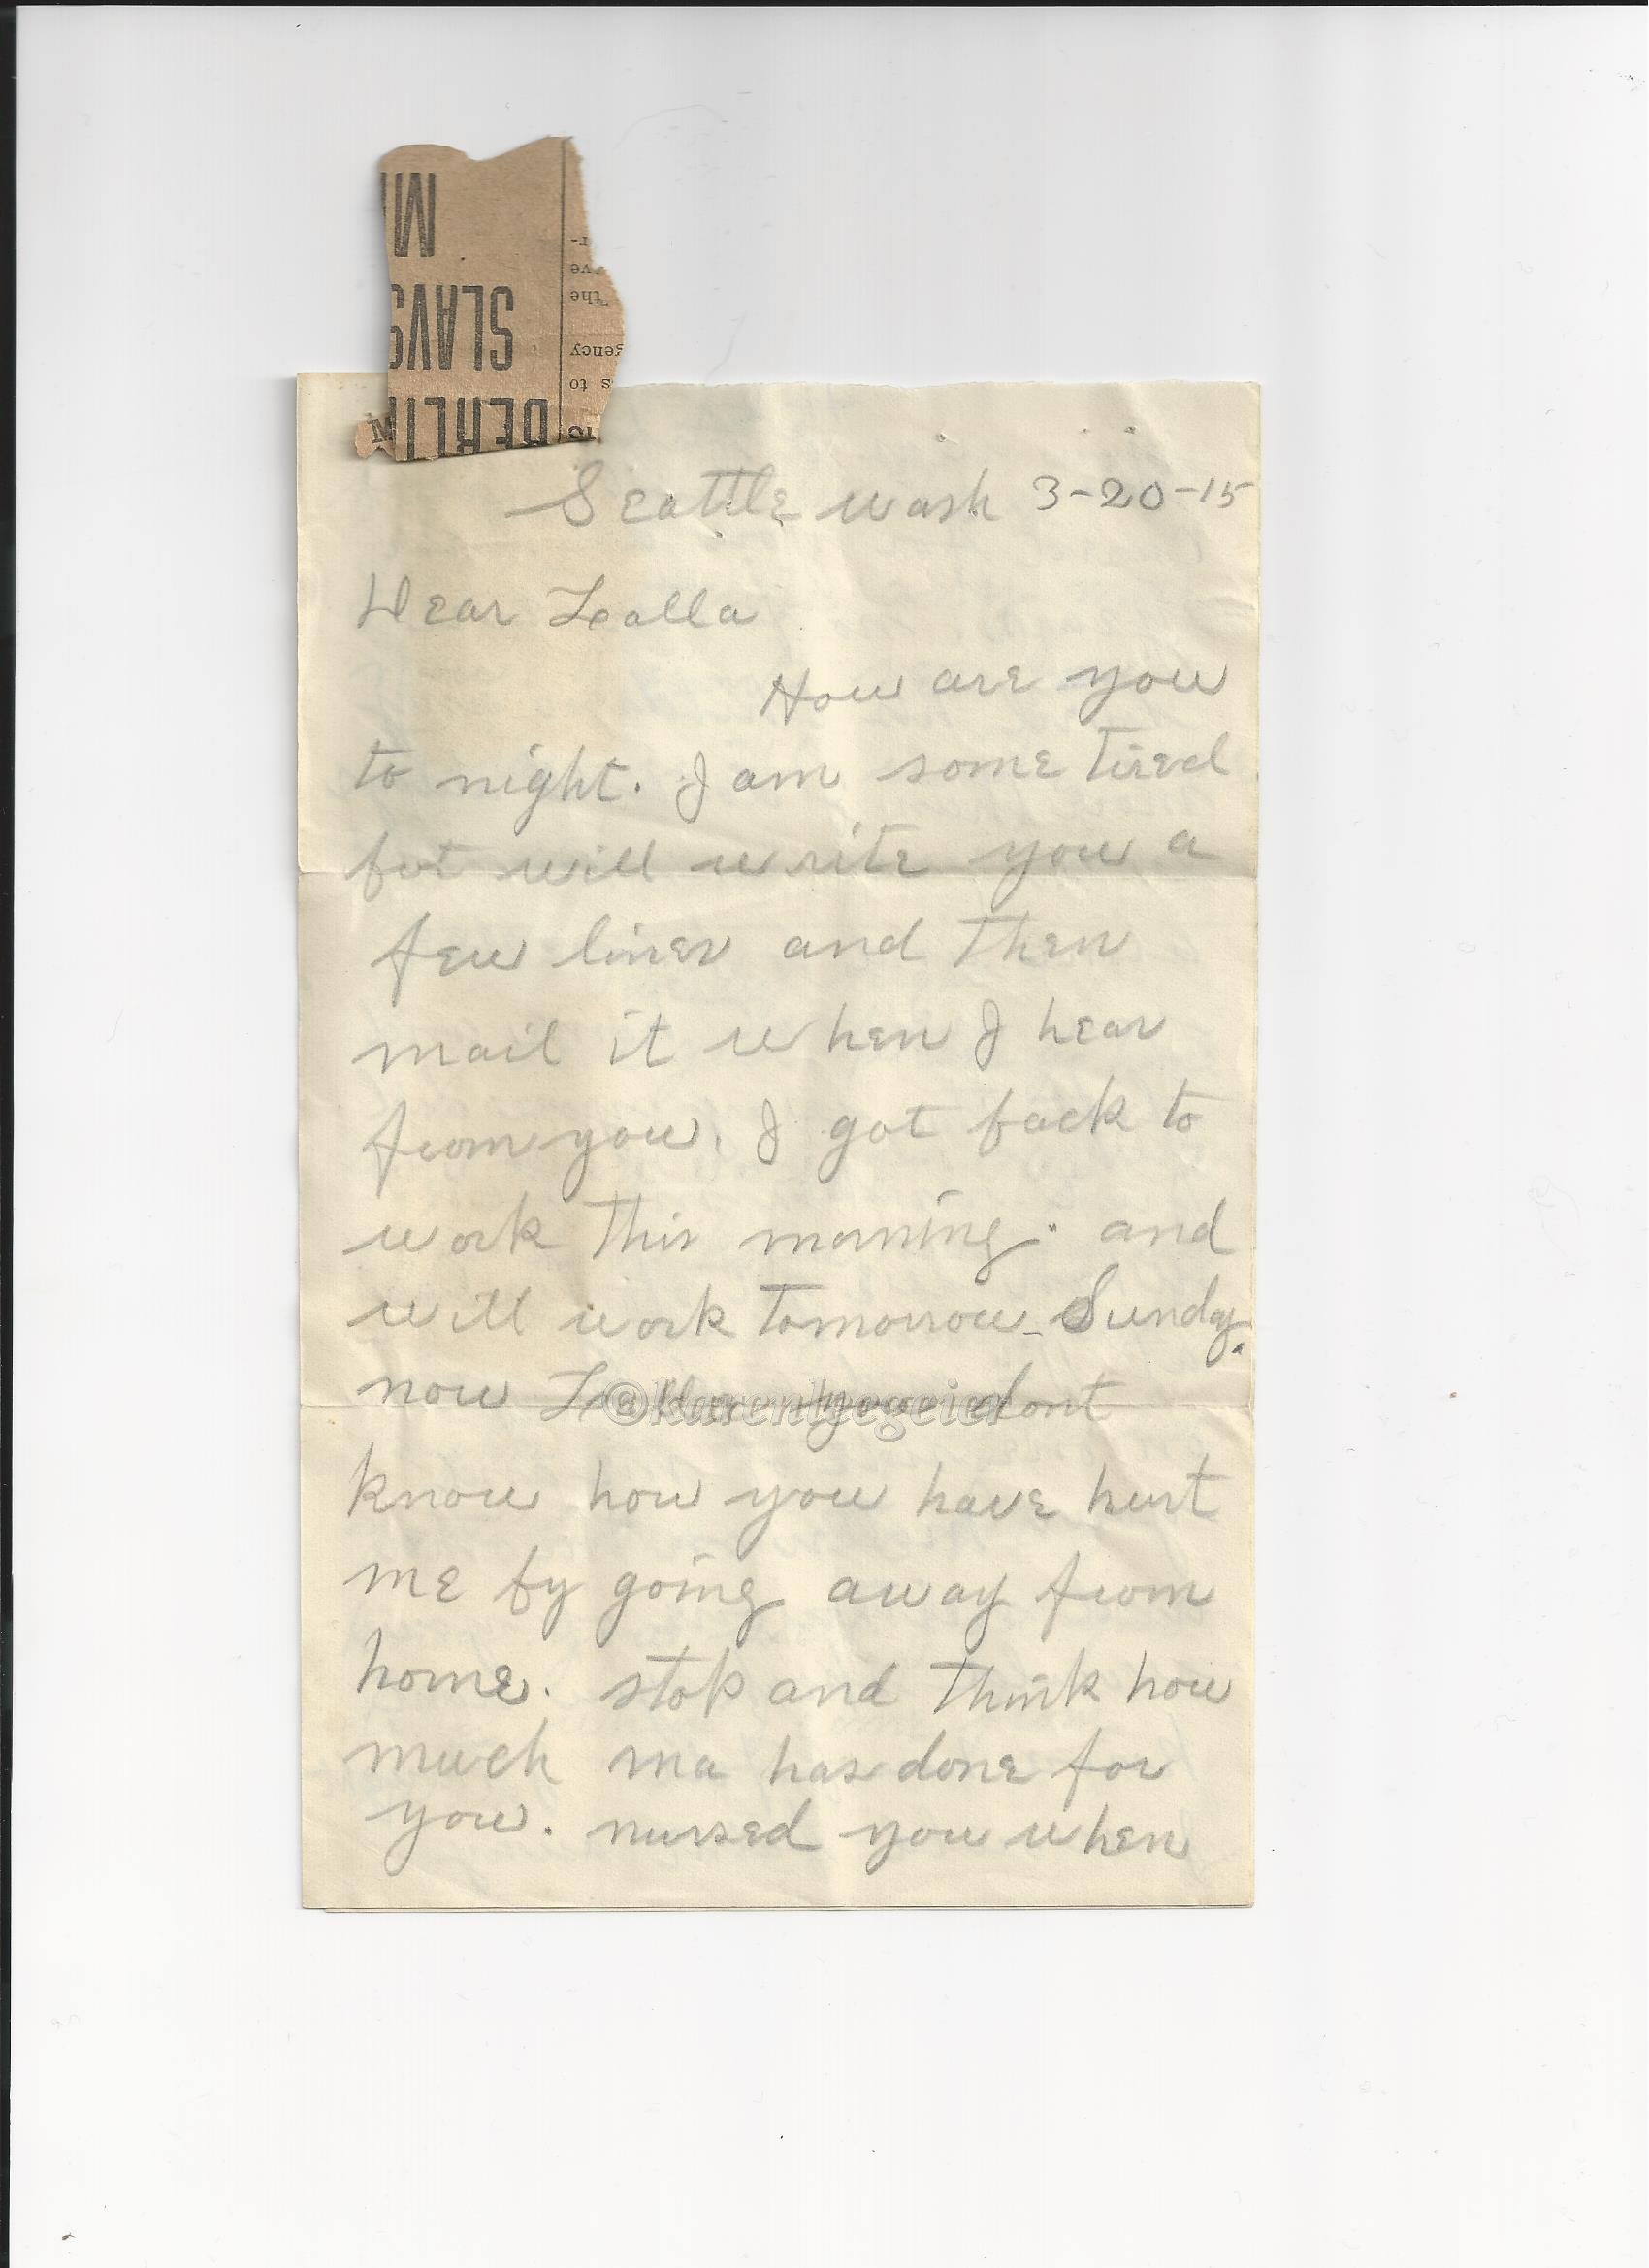 M
SLAVS
BERLIN
r-
ve
the
gency
s to
Seattle wash 3-20-15
Dear Lealla
How are you
to night. I am some tired
but will write you a
few lines and then
mail it when I hear
from you. I got back to
work this morning. and
will work tomorrow_Sunday.
now Lealla you dont
know how you have hurt
me by going away from
home. stop and think how
much ma has done for
you. nursed you when
@karenleegeier